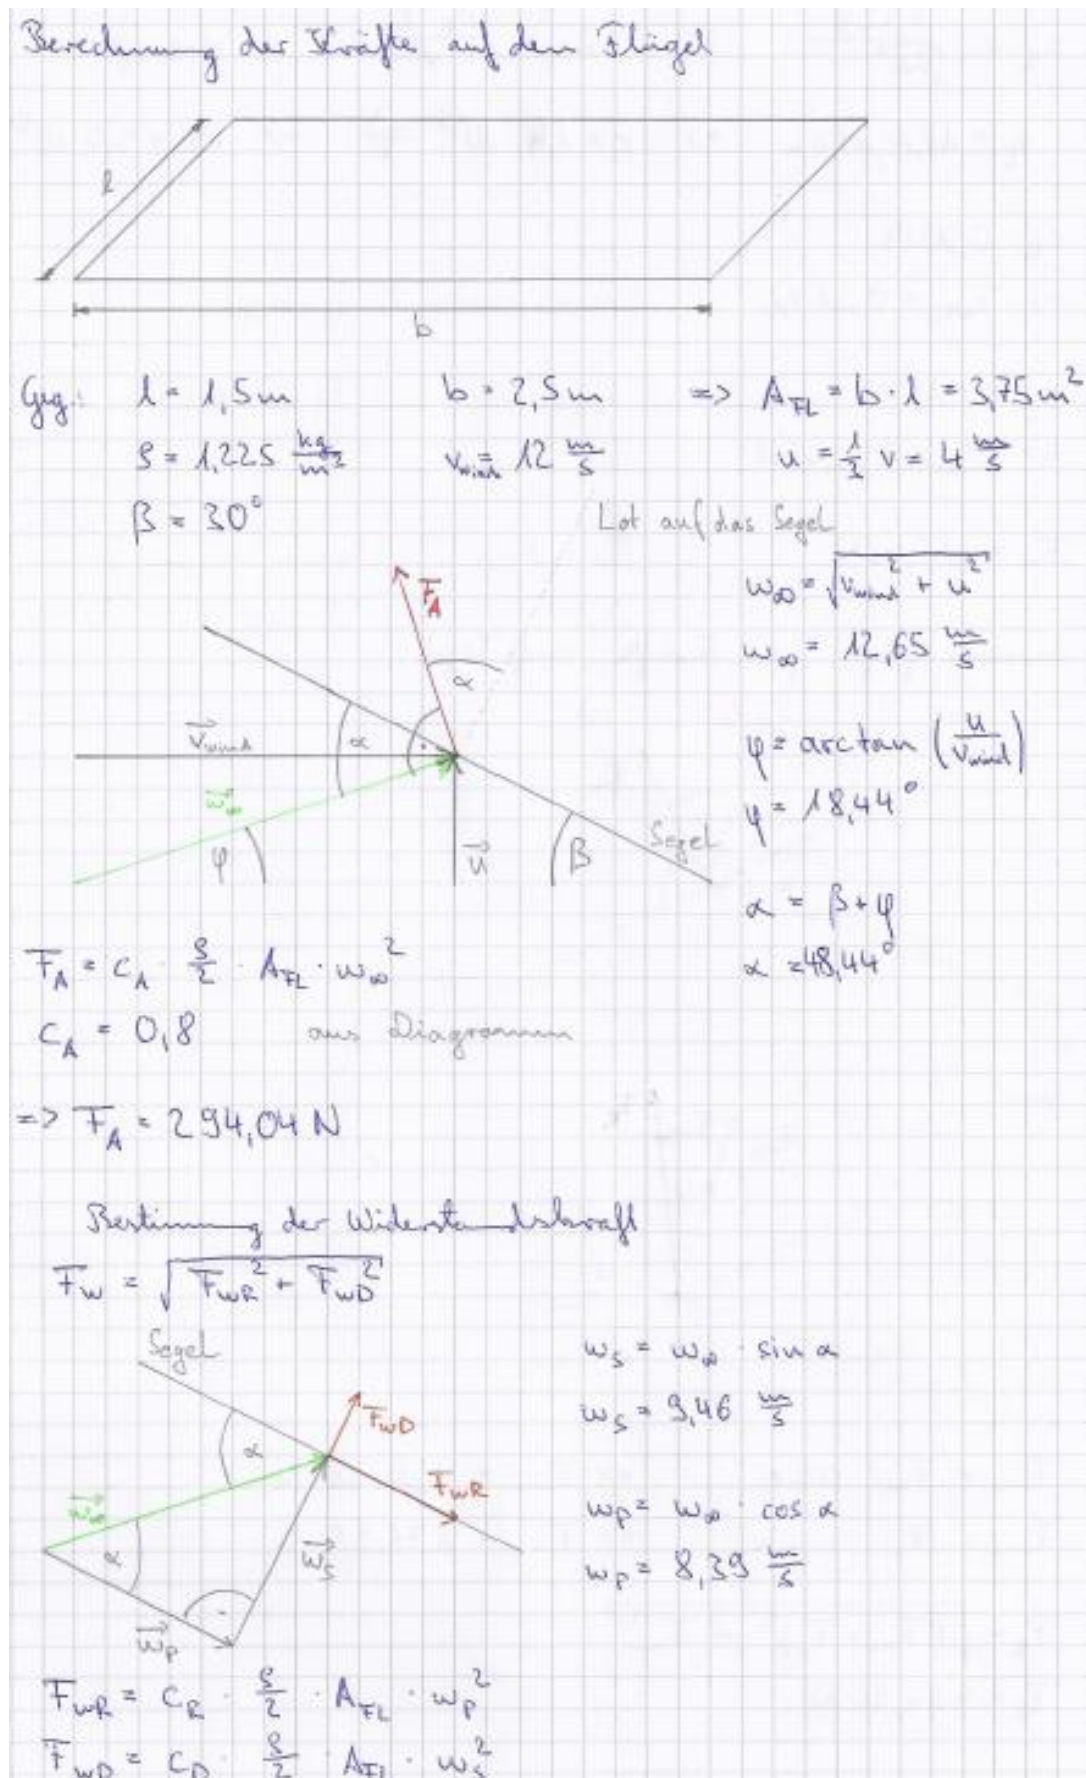 Berechnung der Kräfte auf den Flügel
l
b
Geg.: l = 1,5 m b = 2,5 m => A_FL = b · l = 3,75 m²
ρ = 1,225 kg/m³ v_wind = 12 m/s u = 1/3 v = 4 m/s
β = 30°
Lot auf das Segel
w_∞ = √(v_wind² + u²)
F_A
w_∞ = 12,65 m/s
α
v_wind α
φ = arctan (u/v_wind)
w_∞
φ = 18,44°
φ u β Segel
α = β + φ
α = 48,44°
F_A = c_A · ρ/2 · A_FL · w_∞²
c_A = 0,8 aus Diagramm
=> F_A = 294,04 N
Bestimmung der Widerstandskraft
F_W = √(F_WR² + F_WD²)
Segel
w_s = w_∞ · sin α
w_s = 9,46 m/s
F_WD
α
F_WR
w_∞
w_p = w_∞ · cos α
α w_s
w_p = 8,39 m/s
w_p
F_WR = c_R · ρ/2 · A_FL · w_p²
F_WD = c_D · ρ/2 · A_FL · w_s²